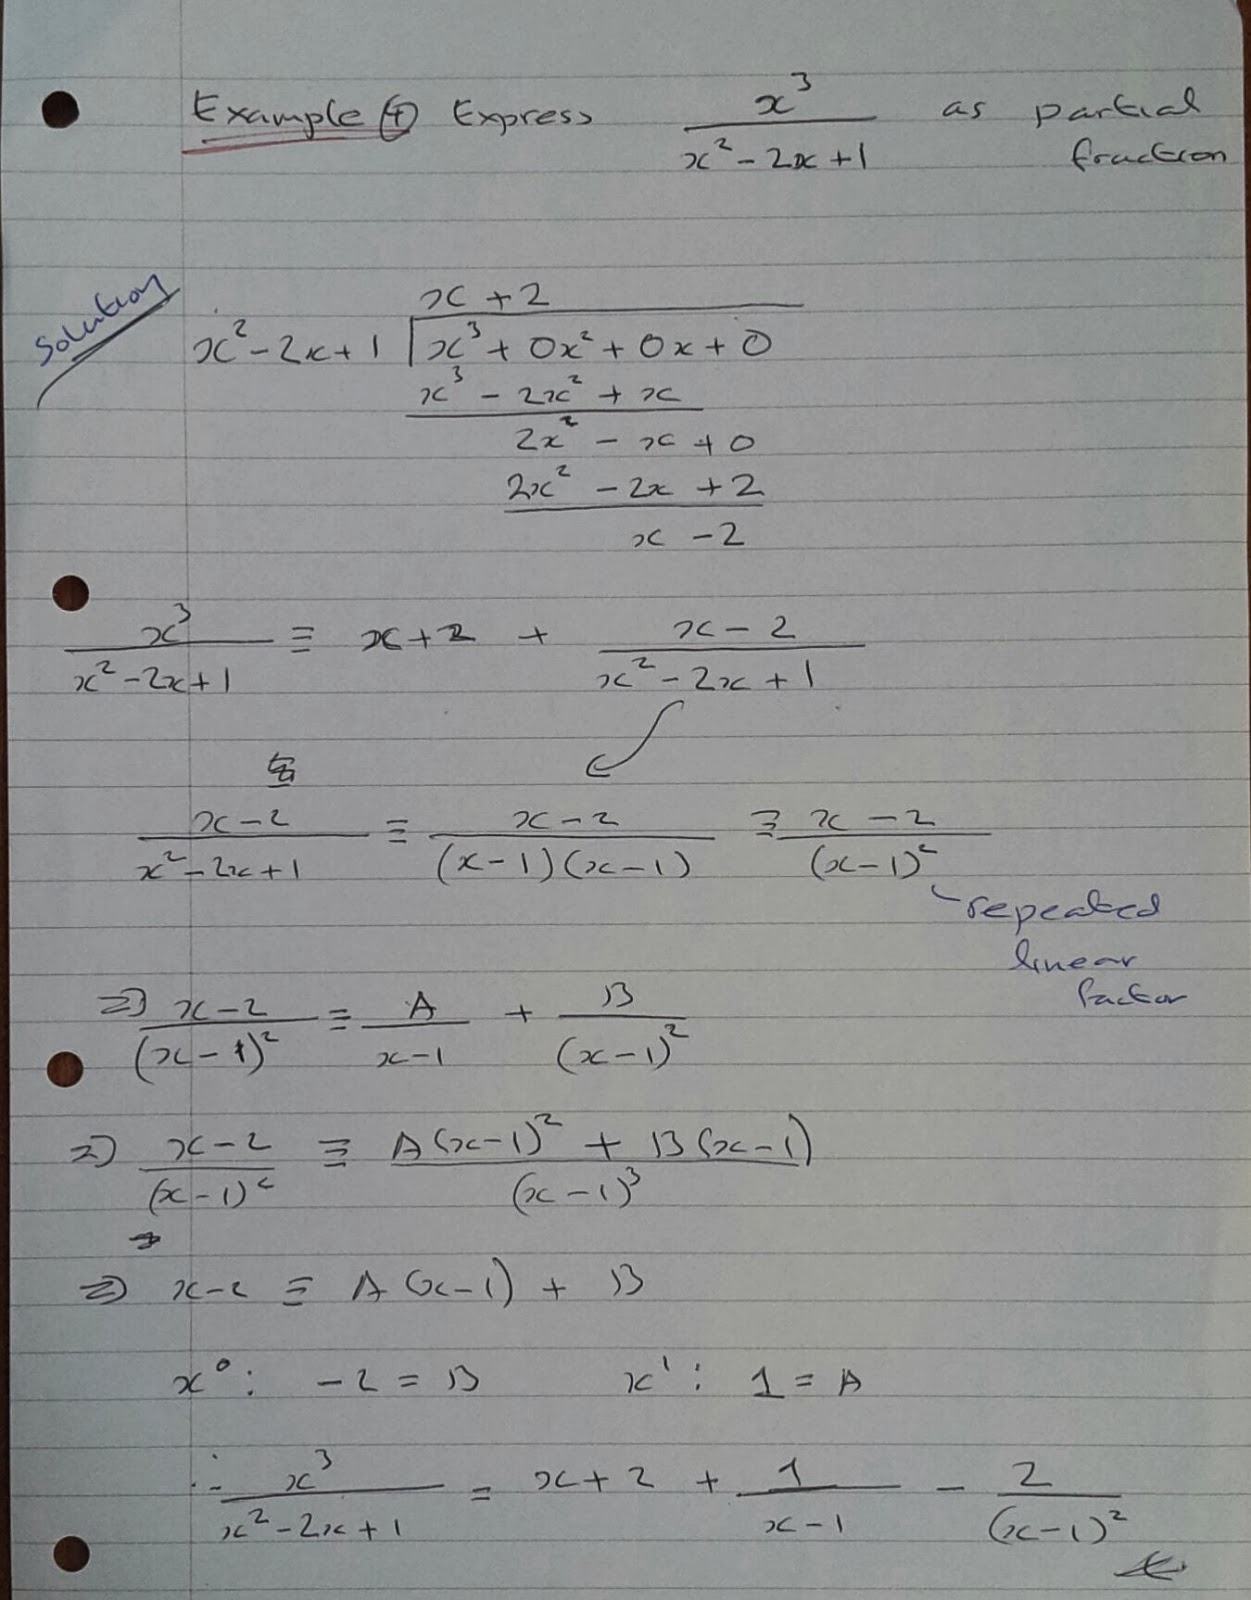 Example ④ Express x³/(x² - 2x + 1) as partial fraction
Solution
x + 2
x² - 2x + 1 | x³ + 0x² + 0x + 0
x³ - 2x² + x
2x² - x + 0
2x² - 2x + 2
x - 2
x³/(x² - 2x + 1) ≡ x + 2 + (x - 2)/(x² - 2x + 1)
(x - 2)/(x² - 2x + 1) ≡ (x - 2)/((x - 1)(x - 1)) ≡ (x - 2)/(x - 1)²
repeated
linear
factor
⇒ (x - 2)/(x - 1)² ≡ A/(x - 1) + B/(x - 1)²
⇒ (x - 2)/(x - 1)² ≡ (A(x - 1)² + B(x - 1))/(x - 1)³
⇒ x - 2 ≡ A(x - 1) + B
x⁰: -2 = B x¹: 1 = A
∴ x³/(x² - 2x + 1) = x + 2 + 1/(x - 1) - 2/(x - 1)²